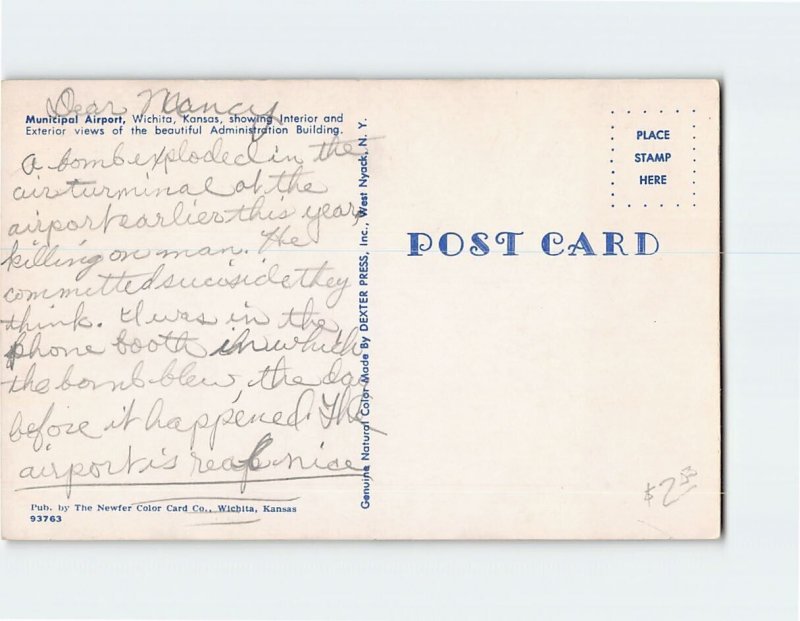 Dear Nancy
Municipal Airport, Wichita, Kansas, showing Interior and
Exterior views of the beautiful Administration Building.
A bomb exploded in the
air turminal at the
airport earlier this year,
killing on man. He
committed sucoside they
think. I was in the
phone booth in which
the bomb blew, the day
before it happened. The
airport is real nice
Pub. by The Newfer Color Card Co., Wichita, Kansas
93763
Genuine Natural Color Made By DEXTER PRESS, Inc., West Nyack, N. Y.
PLACE
STAMP
HERE
POST CARD
$2.50